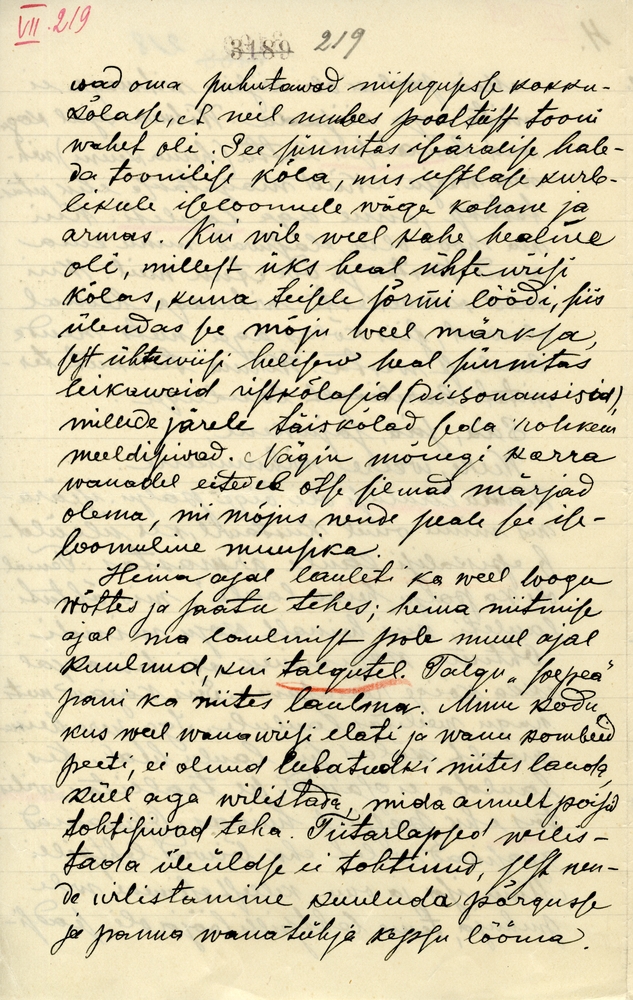 VII. 219
3189 219
wad oma puhutawad niisugusesse kokku-
kõlasse, et neil umbes pooltõist tooni
wahet oli. See sünnitas isäralise hale-
da toonilise kõla, mis estlase kurb-
likule iseloomule wäga kohane ja
armas. Kui wile weel kahe healine
oli, millest üks heal ühtewiisi
kõlas, kuna teisele sõrmi löödi, siis
ülendas se mõju weel märksa,
sest ühtewiisi helisew heal sünnitas
leikawaid ristkõlasid (dissonansisid),
millede järele täiskõlad seda rohkem
meeldisiwad. Nägin mõnegi korra
wanadel eitedel otse silmad märjad
olema, nii mõjus nende peale se ise-
loomuline muusika.
Heina ajal lauleti ka weel loogu
wõttes ja saatu tehes; heina niitmise
ajal ma laulmist pole muul ajal
kuulnud, kui talgutel. Talgu „ soepea"
pani ka niites laulma. Minu kodu,
kus weel wanawiisi elati ja wanu kombeid
peeti, ei olnud lubatudki niites laulda,
küll aga wilistada, mida ainult poisid
tohtisiwad teha. Tütarlapsed wilis-
tada üleüldse ei tohtinud, sest nen-
de wilistamine kuuluda põrgusse
ja panna wanatühja kepsu lööma.